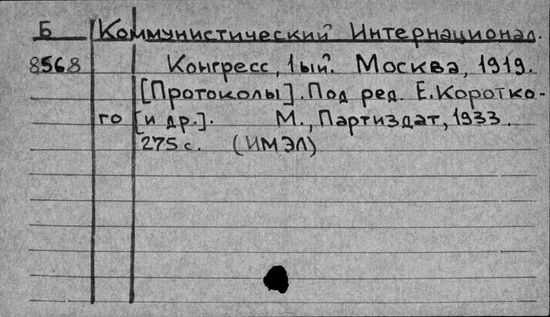 Б Коммунистический Интернационал.
8568 Конгресс, 1ый. Москва, 1919.
[Протоколы]. Под ред. Е. Коротко-
го [и др.]. М., Партиздат, 1933.
275 с. (ИМЭЛ)